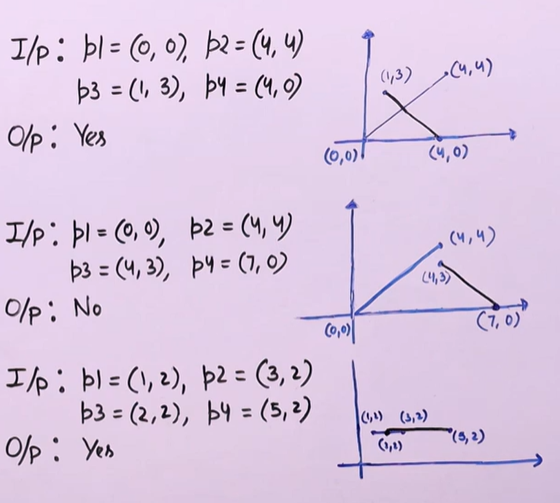 I/p: p1 = (0, 0), p2 = (4, 4)
p3 = (1, 3), p4 = (4, 0)
O/p: Yes
(1,3)
(4, 4)
(0,0)
(4,0)
I/p: p1 = (0, 0), p2 = (4, 4)
p3 = (4, 3), p4 = (7, 0)
O/p: No
(4, 4)
(4,3)
(0,0)
(7, 0)
I/p: p1 = (1, 2), p2 = (3, 2)
p3 = (2, 2), p4 = (5, 2)
O/p: Yes
(1,2)
(3,2)
(5, 2)